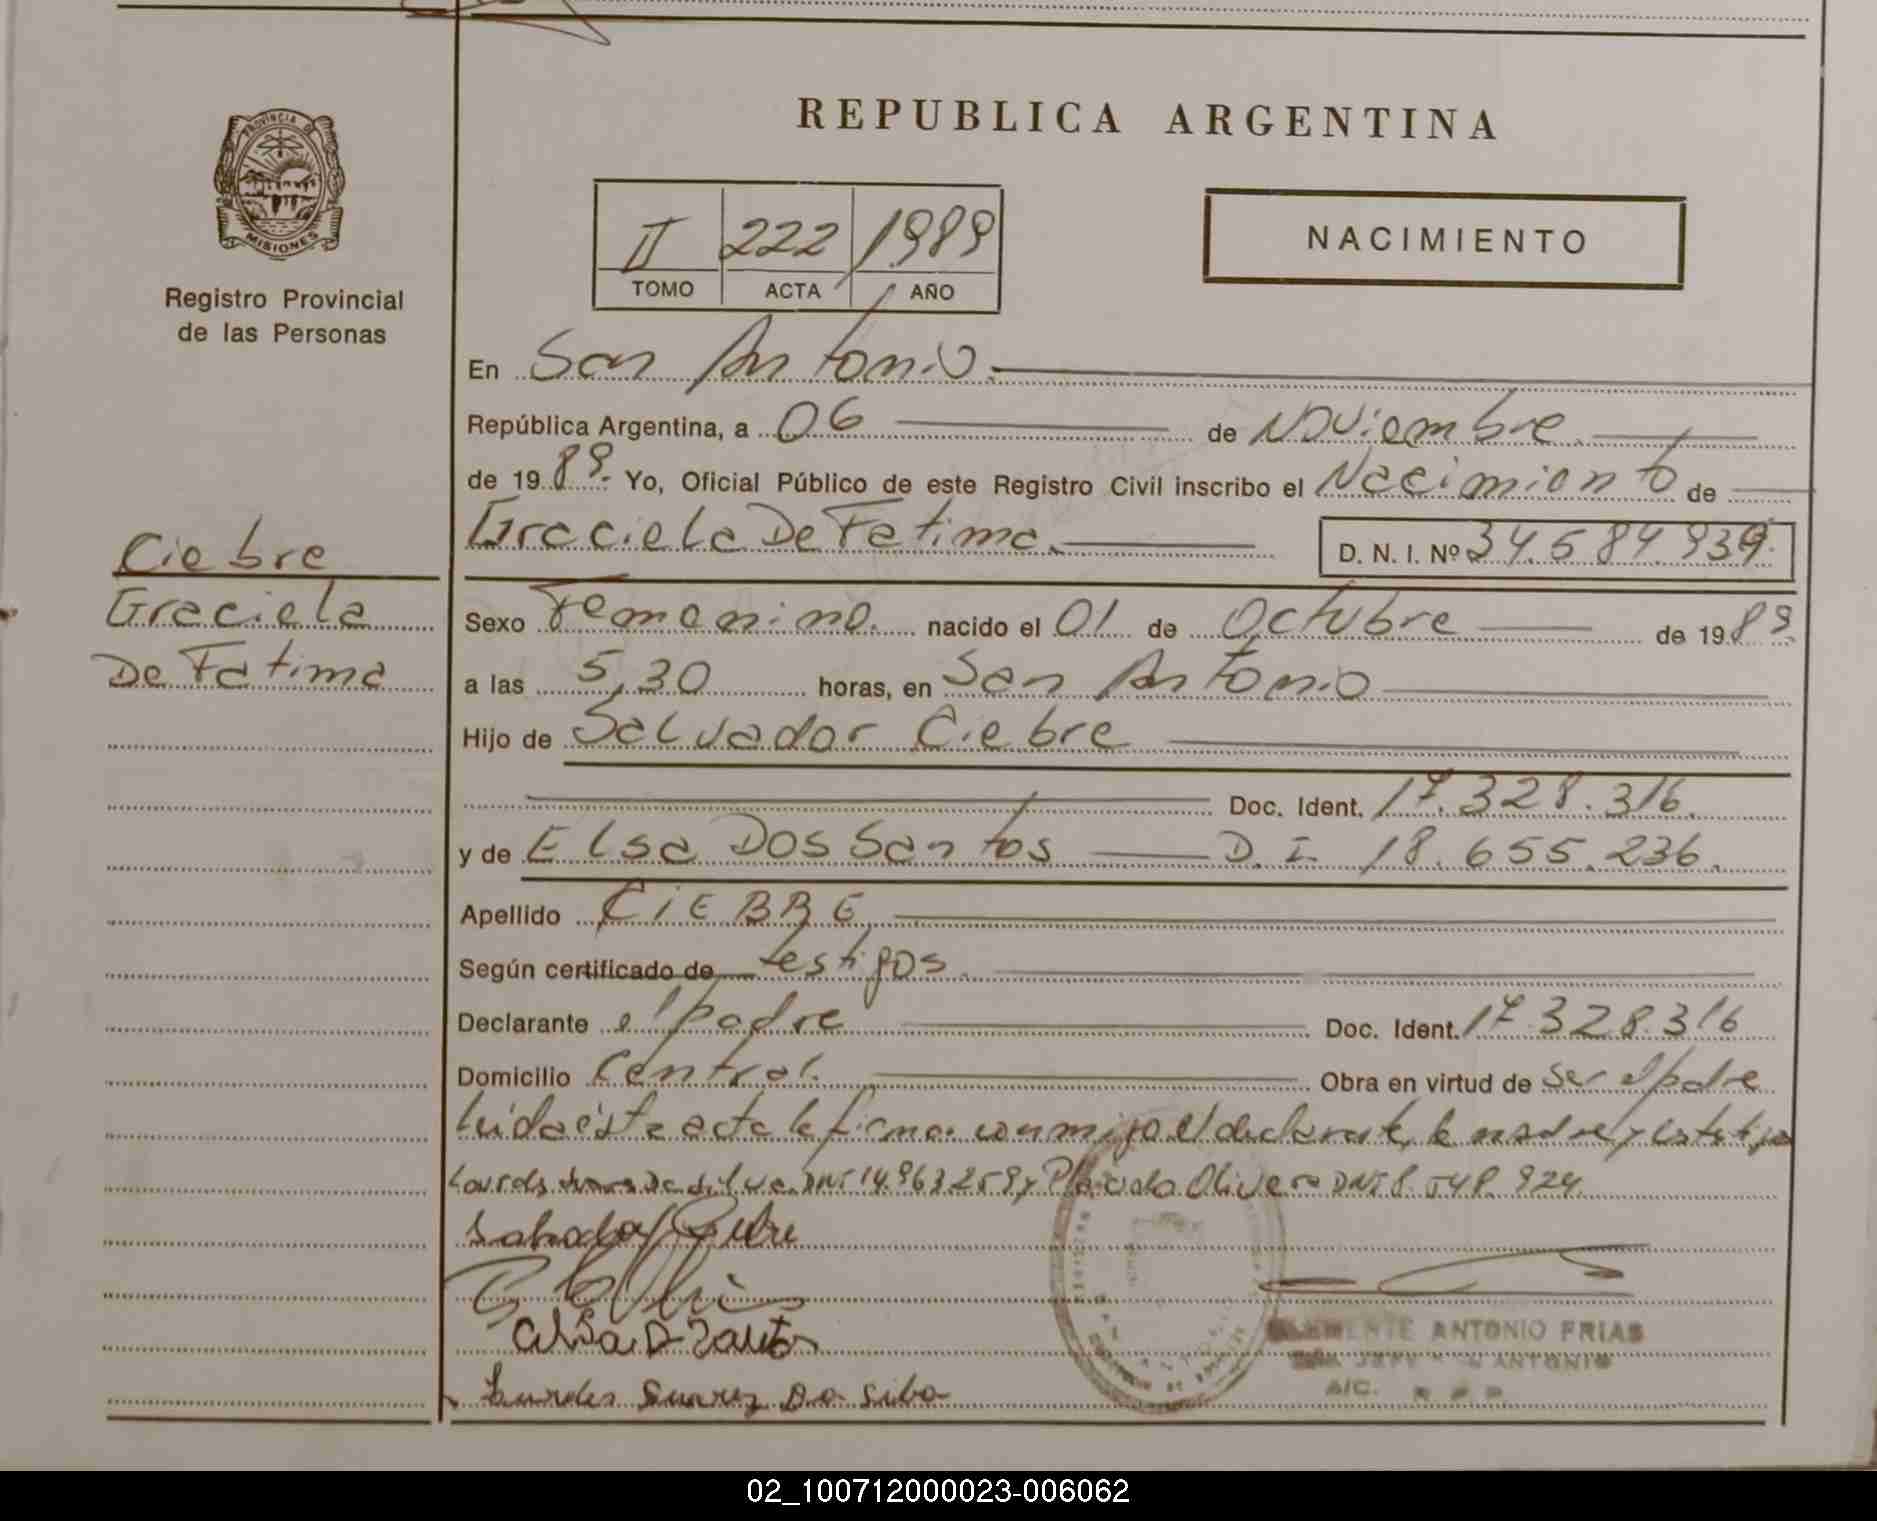 PROVINCIA DE
MISIONES
Registro Provincial
de las Personas
Ciebre
Graciela
De Fatima
REPUBLICA ARGENTINA
II 222 1989
TOMO ACTA AÑO
NACIMIENTO
En San Antonio.
República Argentina, a 06 de Noviembre.
de 1989. Yo, Oficial Público de este Registro Civil inscribo el Nacimiento de
Graciela De Fatima. D. N. I. Nº 34.584.939.
Sexo Femenino. nacido el 01 de Octubre de 1989.
a las 5,30 horas, en San Antonio
Hijo de Salvador Ciebre
Doc. Ident. 17.328.316.
y de Elsa Dos Santos D. I. 18.655.236.
Apellido CIEBRE
Según certificado de testigos.
Declarante el padre Doc. Ident. 17.328.316
Domicilio Central. Obra en virtud de ser el padre
Leida esta acta la firman conmigo el declarante, la madre y los testigos
Lourdes Da Silva DNI 14.963.259 y Placido Olivera DNI 8.548.924.
Salvador Ciebre
Elsa D Santos
Lurdes Suarez Da Silva
CLEMENTE ANTONIO FRIAS
JEFE SAN ANTONIO
A/C. R. P. P.
02_100712000023-006062